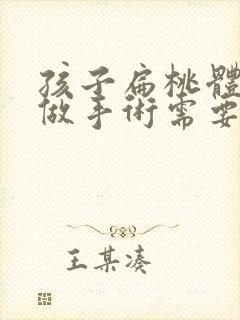 孩子扁桃體
做手術需要
王某湊